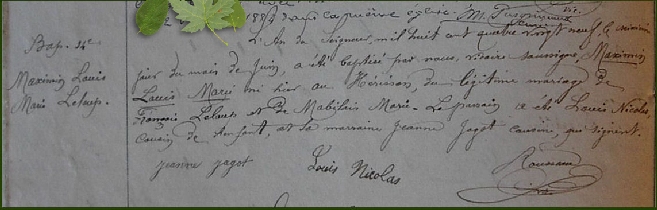 188
Bap. 4e
Maximin Louis
Marie Leloup.
L'An du Seigneur, mil huit cent quatre vingt neuf, le
jour du mois de Juin, a été baptisé par nous, vicaire soussigné, Maximin
Louis Marie né hier au Hérisson, du légitime mariage de
François Leloup et de Mabilais Marie. Le parrain a été Louis Nicolas,
cousin de l'enfant, et la marraine Jeanne Jagot cousine, qui signent.
jeanne jagot
Louis Nicolas